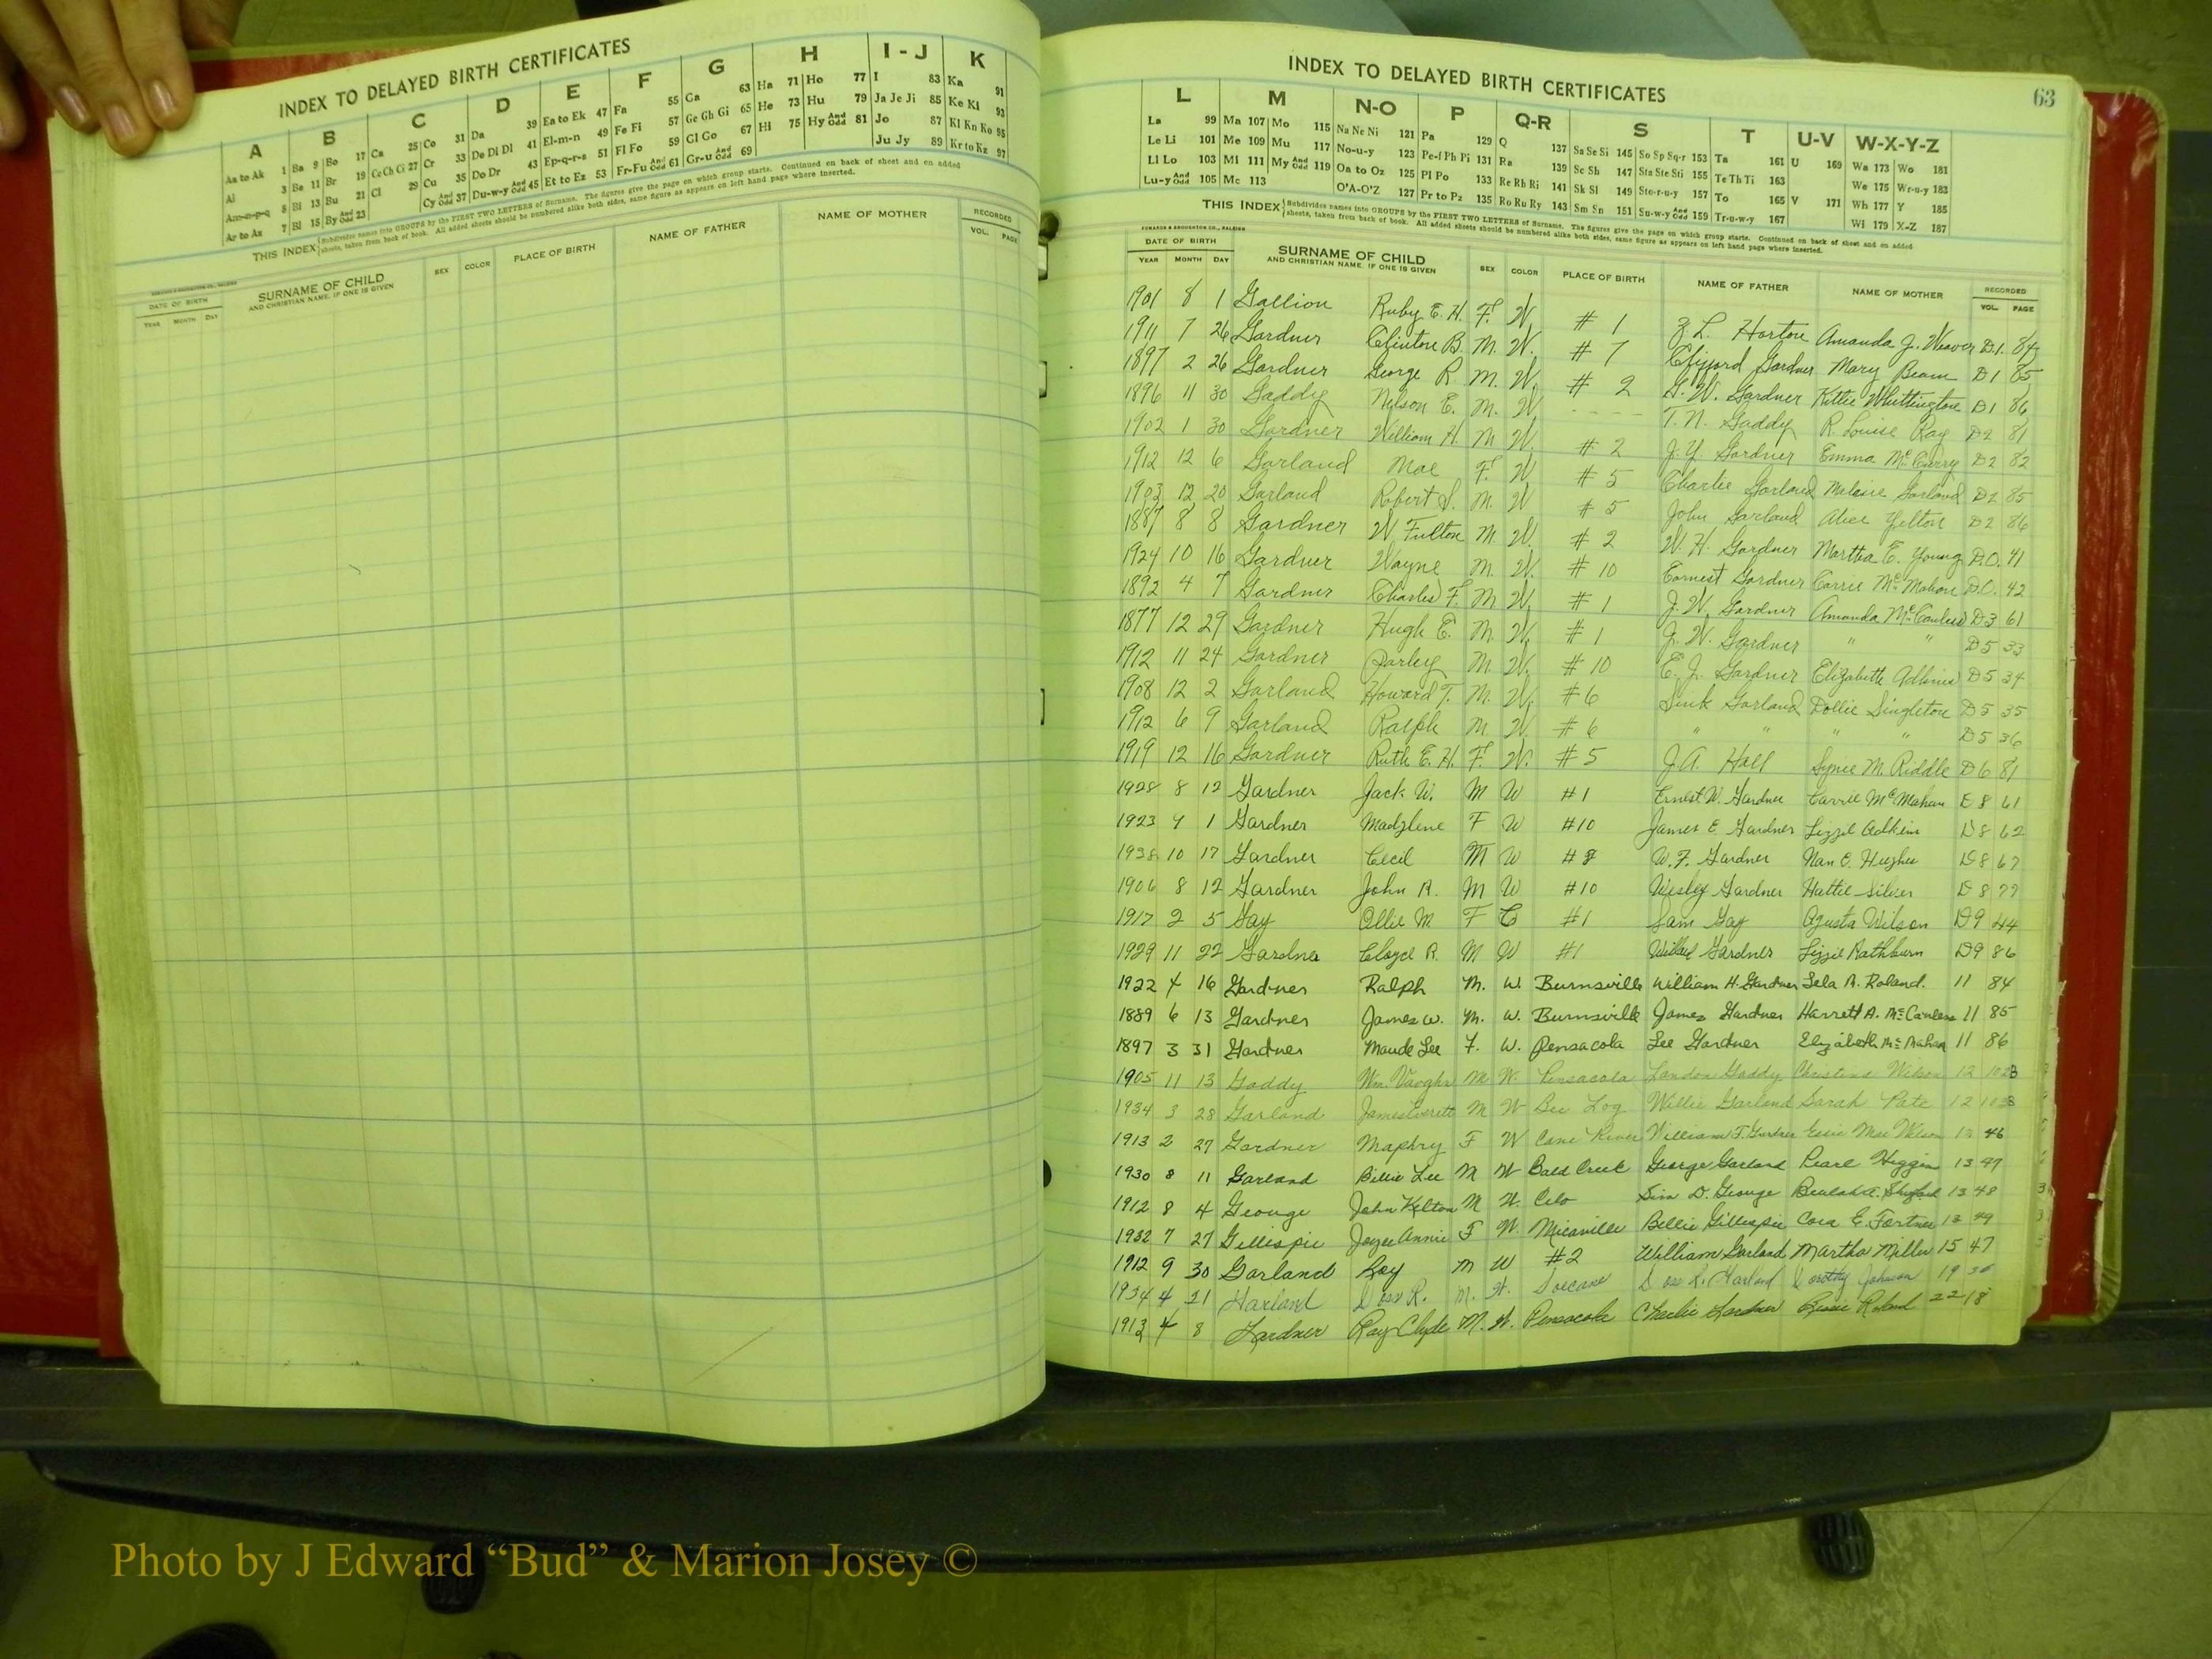 INDEX TO DELAYED BIRTH CERTIFICATES
A B C D E F G H I-J K
Aa to Ak 1 Ba 9 Bo 17 Ca 25 Co 31 Da 39 Ea to Ek 47 Fa 55 Ga 63 Ha 71 Ho 77 I 83 Ka 91
Al 3 Be 11 Br 19 Ce Ch Ci 27 Cr 33 De Di Dl 41 El-m-n 49 Fe Fi 57 Ge Gh Gi 65 He 73 Hu 79 Ja Je Ji 85 Ke Ki 93
Am-n-p-q 5 Bi 13 Bu 21 Cl 29 Cu 35 Do Dr 43 Ep-q-r-s 51 Fl Fo 59 Gl Go 67 Hi 75 Hy And Odd 81 Jo 87 Kl Kn Ko 95
Ar to Az 7 Bl 15 By And Odd 23 Cy And Odd 37 Du-w-y And Odd 45 Et to Ez 53 Fr-Fu And Odd 61 Gr-u And Odd 69 Ju Jy 89 Kr to Kz 97
THIS INDEX Subdivides names into GROUPS by the FIRST TWO LETTERS of Surname. The figures give the page on which group starts. Continued on back of sheet and on added
sheets, taken from back of book. All added sheets should be numbered alike both sides, same figure as appears on left hand page where inserted.
DATE OF BIRTH SURNAME OF CHILD SEX COLOR PLACE OF BIRTH NAME OF FATHER NAME OF MOTHER RECORDED
YEAR MONTH DAY AND CHRISTIAN NAME, IF ONE IS GIVEN VOL. PAGE
63
INDEX TO DELAYED BIRTH CERTIFICATES
L M N-O P Q-R S T U-V W-X-Y-Z
La 99 Ma 107 Mo 115 Na Ne Ni 121 Pa 129 Q 137 Sa Se Si 145 So Sp Sq-r 153 Ta 161 U 169 Wa 173 Wo 181
Le Li 101 Me 109 Mu 117 No-u-y 123 Pe-f Ph Pi 131 Ra 139 Sc Sh 147 Sta Ste Sti 155 Te Th Ti 163 We 175 Wr-u-y 183
Ll Lo 103 Mi 111 My And Odd 119 Oa to Oz 125 Pl Po 133 Re Rh Ri 141 Sk Sl 149 Sto-r-u-y 157 To 165 V 171 Wh 177 Y 185
Lu-y And Odd 105 Mc 113 O'A-O'Z 127 Pr to Pz 135 Ro Ru Ry 143 Sm Sn 151 Su-w-y And Odd 159 Tr-u-w-y 167 Wi 179 X-Z 187
THIS INDEX Subdivides names into GROUPS by the FIRST TWO LETTERS of Surname. The figures give the page on which group starts. Continued on back of sheet and on added
sheets, taken from back of book. All added sheets should be numbered alike both sides, same figure as appears on left hand page where inserted.
EDWARDS & BROUGHTON CO., RALEIGH
DATE OF BIRTH SURNAME OF CHILD SEX COLOR PLACE OF BIRTH NAME OF FATHER NAME OF MOTHER RECORDED
YEAR MONTH DAY AND CHRISTIAN NAME, IF ONE IS GIVEN VOL. PAGE
1901 8 1 Gallion Ruby E. H. F. W. # 1 Z L. Horton Amanda J. Weaver D.1. 84
1911 7 26 Gardner Clinton B. M. W. # 7 Clifford Gardner Mary Beam D1 85
1897 2 26 Gardner George R. M. W. # 2 G. W. Gardner Kittie Whittington D1 86
1896 11 30 Gaddy Nelson E. M. W. - - - - T. N. Gaddy R. Louise Ray D2 81
1902 1 30 Gardner William H. M W. # 2 J. Y. Gardner Emma McCurry D2 82
1912 12 6 Garland Mae F. W # 5 Charlie Garland Garland D2 85
1903 12 20 Garland Robert M. W # 5 John Garland Alice Yelton D2 86
1887 8 8 Gardner W. Fulton M W. # 2 W. H. Gardner Martha E. Young D.O. 41
1924 10 16 Gardner Wayne M. W. # 10 Earnest Gardner Carrie McMahon D.O. 42
1892 4 7 Gardner Charles F. M W. # 1 J. W. Gardner Amanda D3 61
1877 12 29 Gardner Hugh E. M. W. # 1 J. W. Gardner " " D5 33
1912 11 24 Gardner Parley M. W. # 10 E. J. Gardner Elizabeth Adkins D5 34
1908 12 2 Garland Howard T. M. W. # 6 Garland Dollie Singleton D5 35
1912 6 9 Garland Ralph M W. # 6 " " " " D5 36
1919 12 16 Gardner Ruth E. H. F. W. # 5 J. A. Hall M. Riddle D6 81
1928 8 12 Gardner Jack W. M W #1 Ernest W. Gardner Carrie McMahan D 8 61
1923 9 1 Gardner Madglene F W #10 James E. Gardner Lizzie Adkins D8 62
1938 10 17 Gardner Cecil M W W. F. Gardner Nan E. Hughes D8 67
1906 8 12 Gardner John R. M W #10 Wesley Gardner Hattie Silver D 8 77
1917 2 5 Gay Ollie M. F C #1 Sam Gay Agusta Wilson D9 44
1929 11 22 Gardner Cloyce R. M W #1 Gardner Lizzie Rathburn D9 86
1922 4 16 Gardner Ralph M. W. Burnsville William H. Gardner Lela A. Roland. 11 84
1889 6 13 Gardner James W. M. W. Burnsville James Gardner Harrett A. 11 85
1897 3 31 Gardner Maude Lee F. W. Pensacola Lee Gardner Elizabeth McMahan 11 86
1905 11 13 Gaddy Wm. Vaughn M W. Pensacola Landon Gaddy Christina Wilson 12
1934 3 28 Garland James Everett M W Bee Log Willie Garland Sarah Pate 12
1913 2 27 Gardner Maphry F W Cane River William F. Gardner Essie Mae Wilson 13 46
1930 8 11 Garland Billie Lee M W Bald Creek George Garland Pearl Higgins 13 47
1912 8 4 George John Kelton M W. Celo Sim D. George Beulah 13 48
1932 7 27 Gillispie Joyce Annie F W. Micaville Billie Gillispie Cora E. Fortner 13 49
1912 9 30 Garland Roy M W #2 William Garland Martha Miller 15 47
1934 4 21 Garland Doss R. M. W. Toecane Doss R. Garland Dorothy Johnson 19
1913 4 8 Gardner Ray Clyde M. W. Pensacola Charlie Gardner Bessie Roland 22 18
Photo by J Edward “Bud” & Marion Josey ©